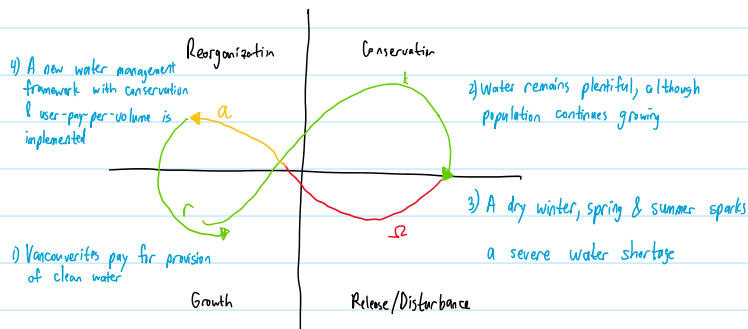 Reorganization
Conservation
4) A new water management
framework with conservation
& user-pay-per-volume is
implemented
a
k
2) Water remains plentiful, although
population continues growing
r
Ω
3) A dry winter, spring & summer sparks
a severe water shortage
1) Vancouverites pay for provision
of clean water
Growth
Release/Disturbance